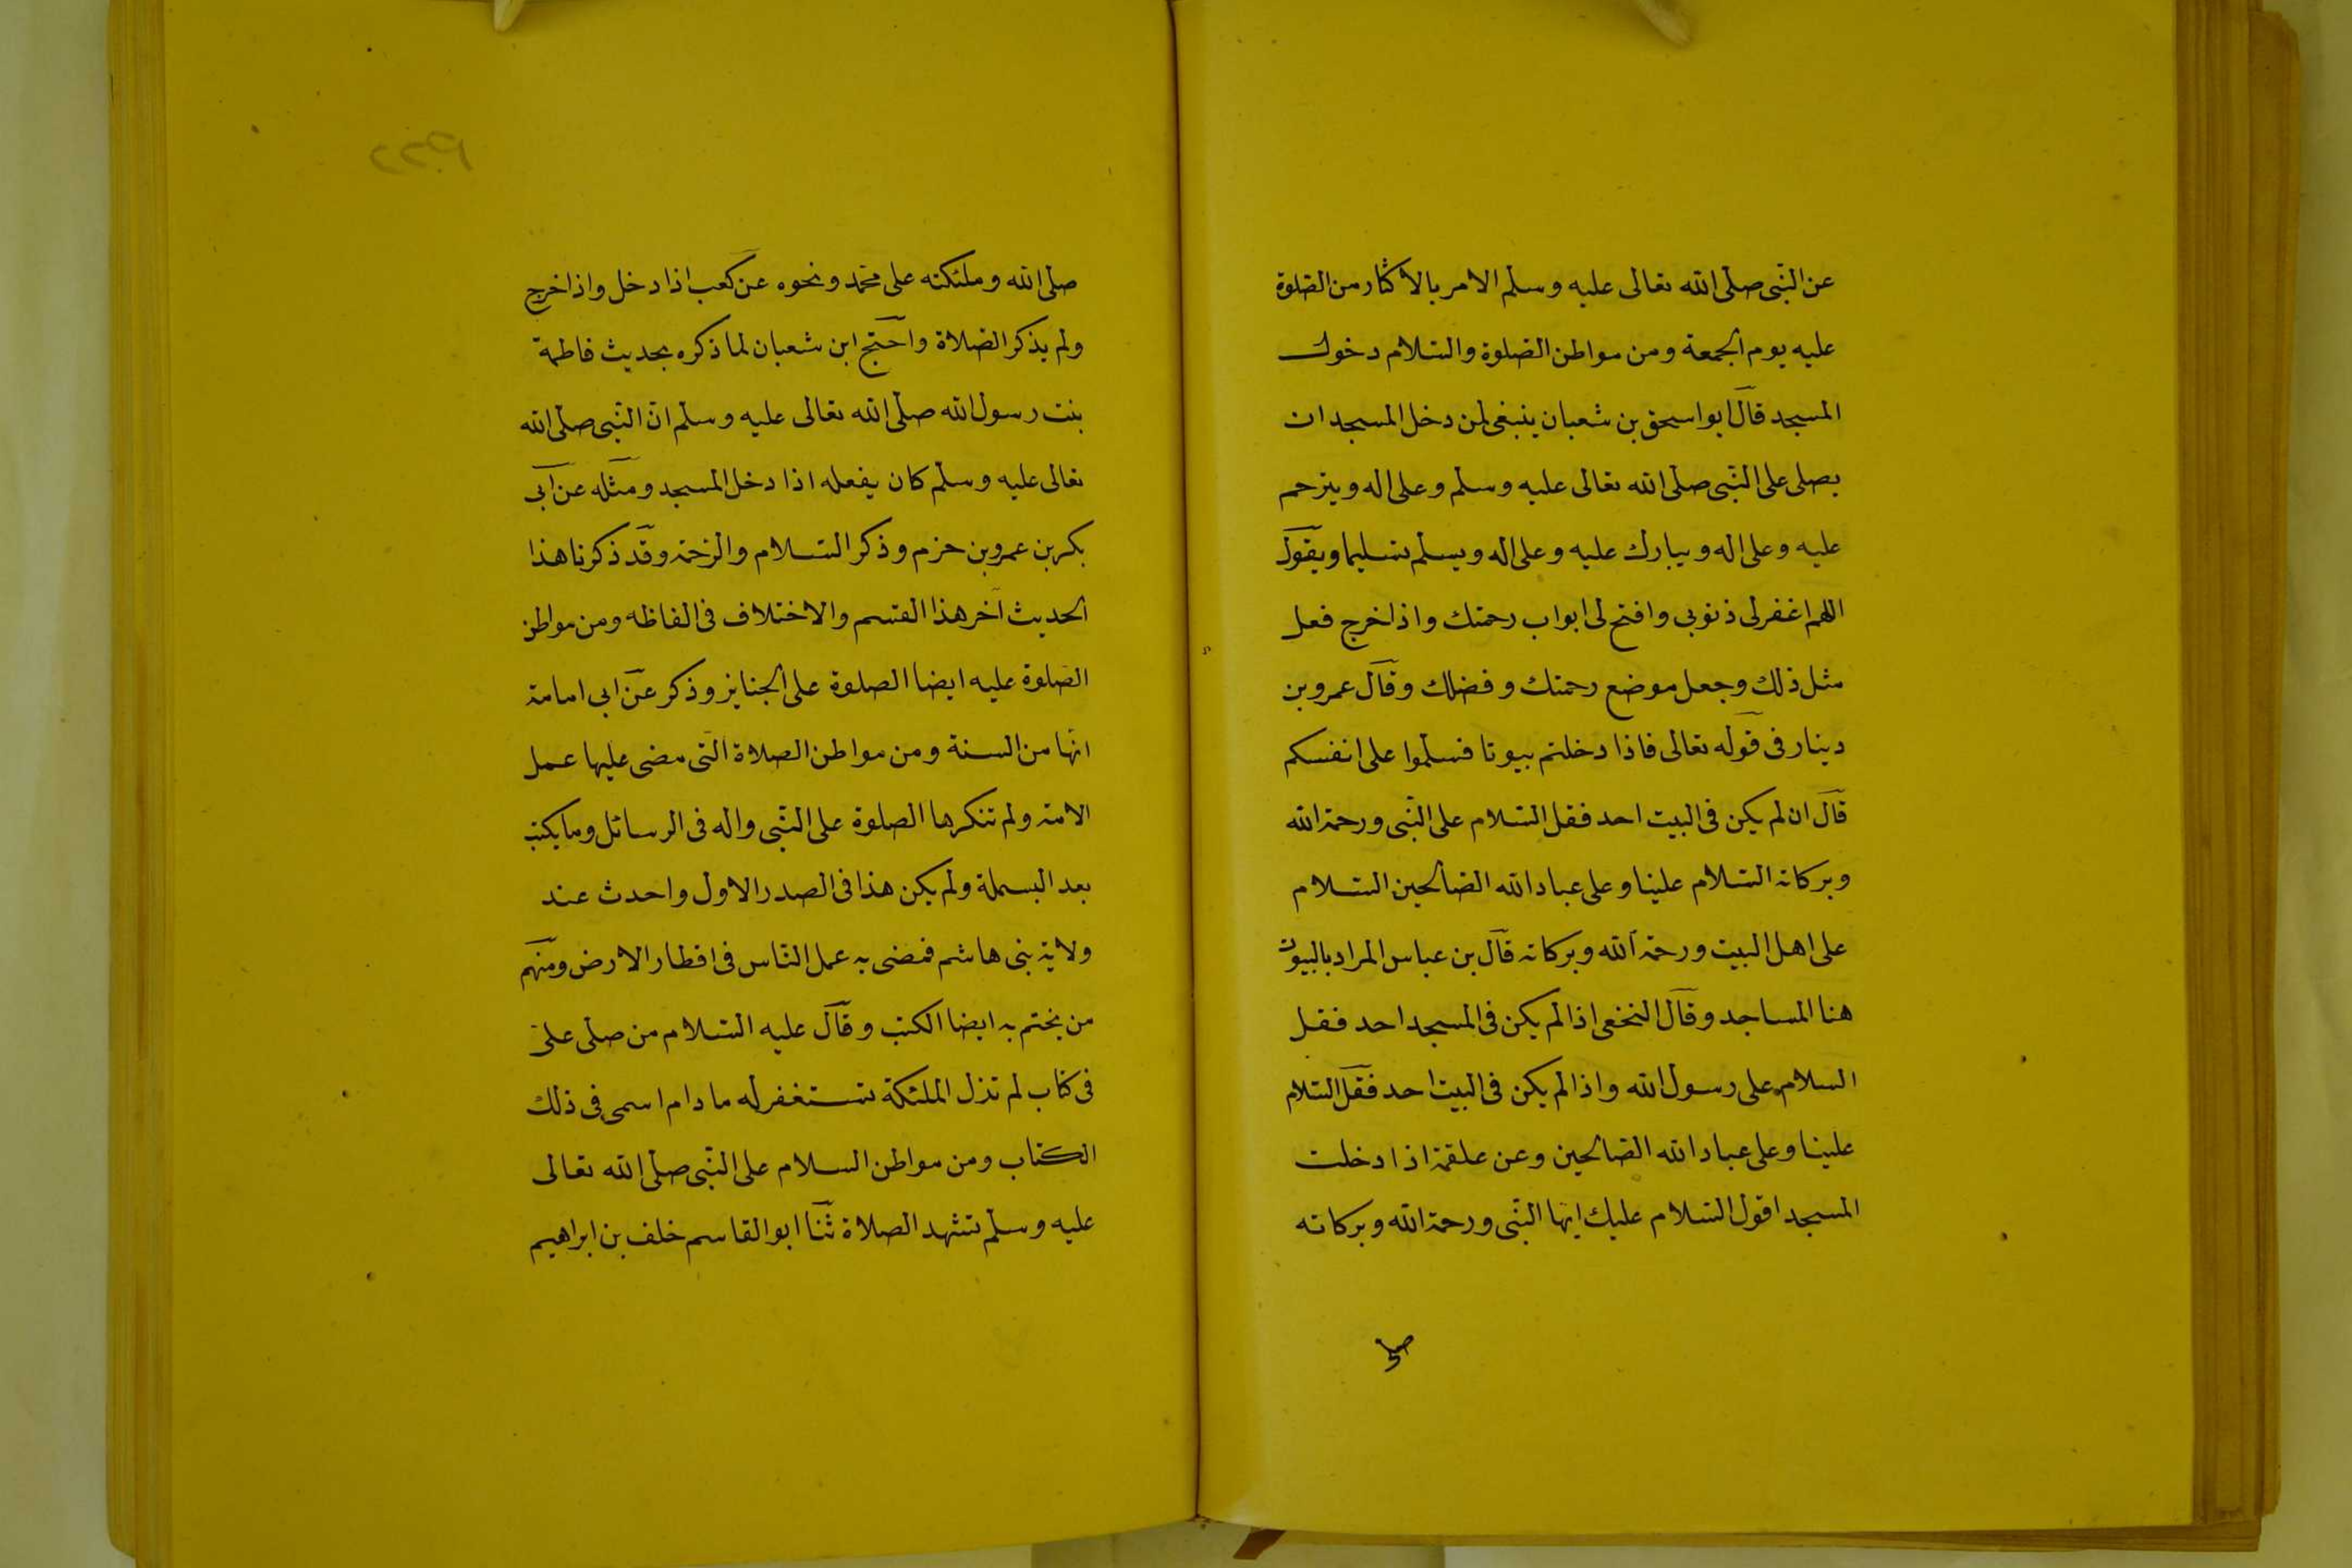 عن النّبى صلّى الله تعالى عليه وسلّم الامر بالاكثار من الصّلوة
عليه يوم الجمعة ومن مواطن الصّلوة والسّلام دخول
المسجد قال ابو اسحق بن شعبان ينبغى لمن دخل المسجد ان
يصلى على النّبى صلّى الله تعالى عليه وسلّم وعلى اله ويترحم
عليه وعلى اله ويبارك عليه وعلى اله ويسلّم تسليما ويقول
اللهم اغفرلى ذنوبى وافتح لى ابواب رحمتك واذا خرج فعل
مثل ذلك وجعل موضع رحمتك وفضلك وقال عمرو بن
دينار فى قوله تعالى فاذا دخلتم بيوتا فسلّموا على انفسكم
قال ان لم يكن فى البيت احد فقل السّلام على النّبى ورحمة الله
وبركاته السّلام علينا وعلى عباد الله الصّالحين السّلام
على اهل البيت ورحمة الله وبركاته قال بن عباس المراد بالبيوت
هنا المساجد وقال النخعى اذا لم يكن فى المسجد احد فقل
السلام على رسول الله واذا لم يكن فى البيت احد فقل السّلام
علينا وعلى عباد الله الصّالحين وعن علقمة اذا دخلت
المسجد اقول السّلام عليك ايّها النّبى ورحمة الله وبركاته
صلى
صلّى الله وملئكته على محمّد ونحوه عن كعب اذا دخل واذا خرج
ولم يذكر الصّلاة واحتج ابن شعبان لما ذكره بحديث فاطمة
بنت رسول الله صلّى الله تعالى عليه وسلّم انّ النّبى صلّى الله
تعالى عليه وسلّم كان يفعله اذا دخل المسجد ومثله عن ابى
بكر بن عمرو بن حزم وذكر السّلام والرّحمة وقد ذكرنا هذا
الحديث آخر هذا القسم والاختلاف فى الفاظه ومن مواطن
الصّلوة عليه ايضا الصلوة على الجنايز وذكر عن ابى امامة
انّها من السنة ومن مواطن الصلاة الّتى مضى عليها عمل
الامة ولم تنكرها الصلوة على النّبى واله فى الرسائل وما يكتب
بعد البسملة ولم يكن هذا فى الصدر الاول واحدث عند
ولاية بنى هاشم فمضى به عمل النّاس فى اقطار الارض ومنهم
من يختم به ايضا الكتب وقال عليه السّلام من صلّى علىّ
فى كتاب لم تزل الملئكة تستغفرله ما دام اسمى فى ذلك
الكتاب ومن مواطن السلام على النّبى صلّى الله تعالى
عليه وسلّم تشهد الصلاة ثنا ابو القاسم خلف بن ابراهيم